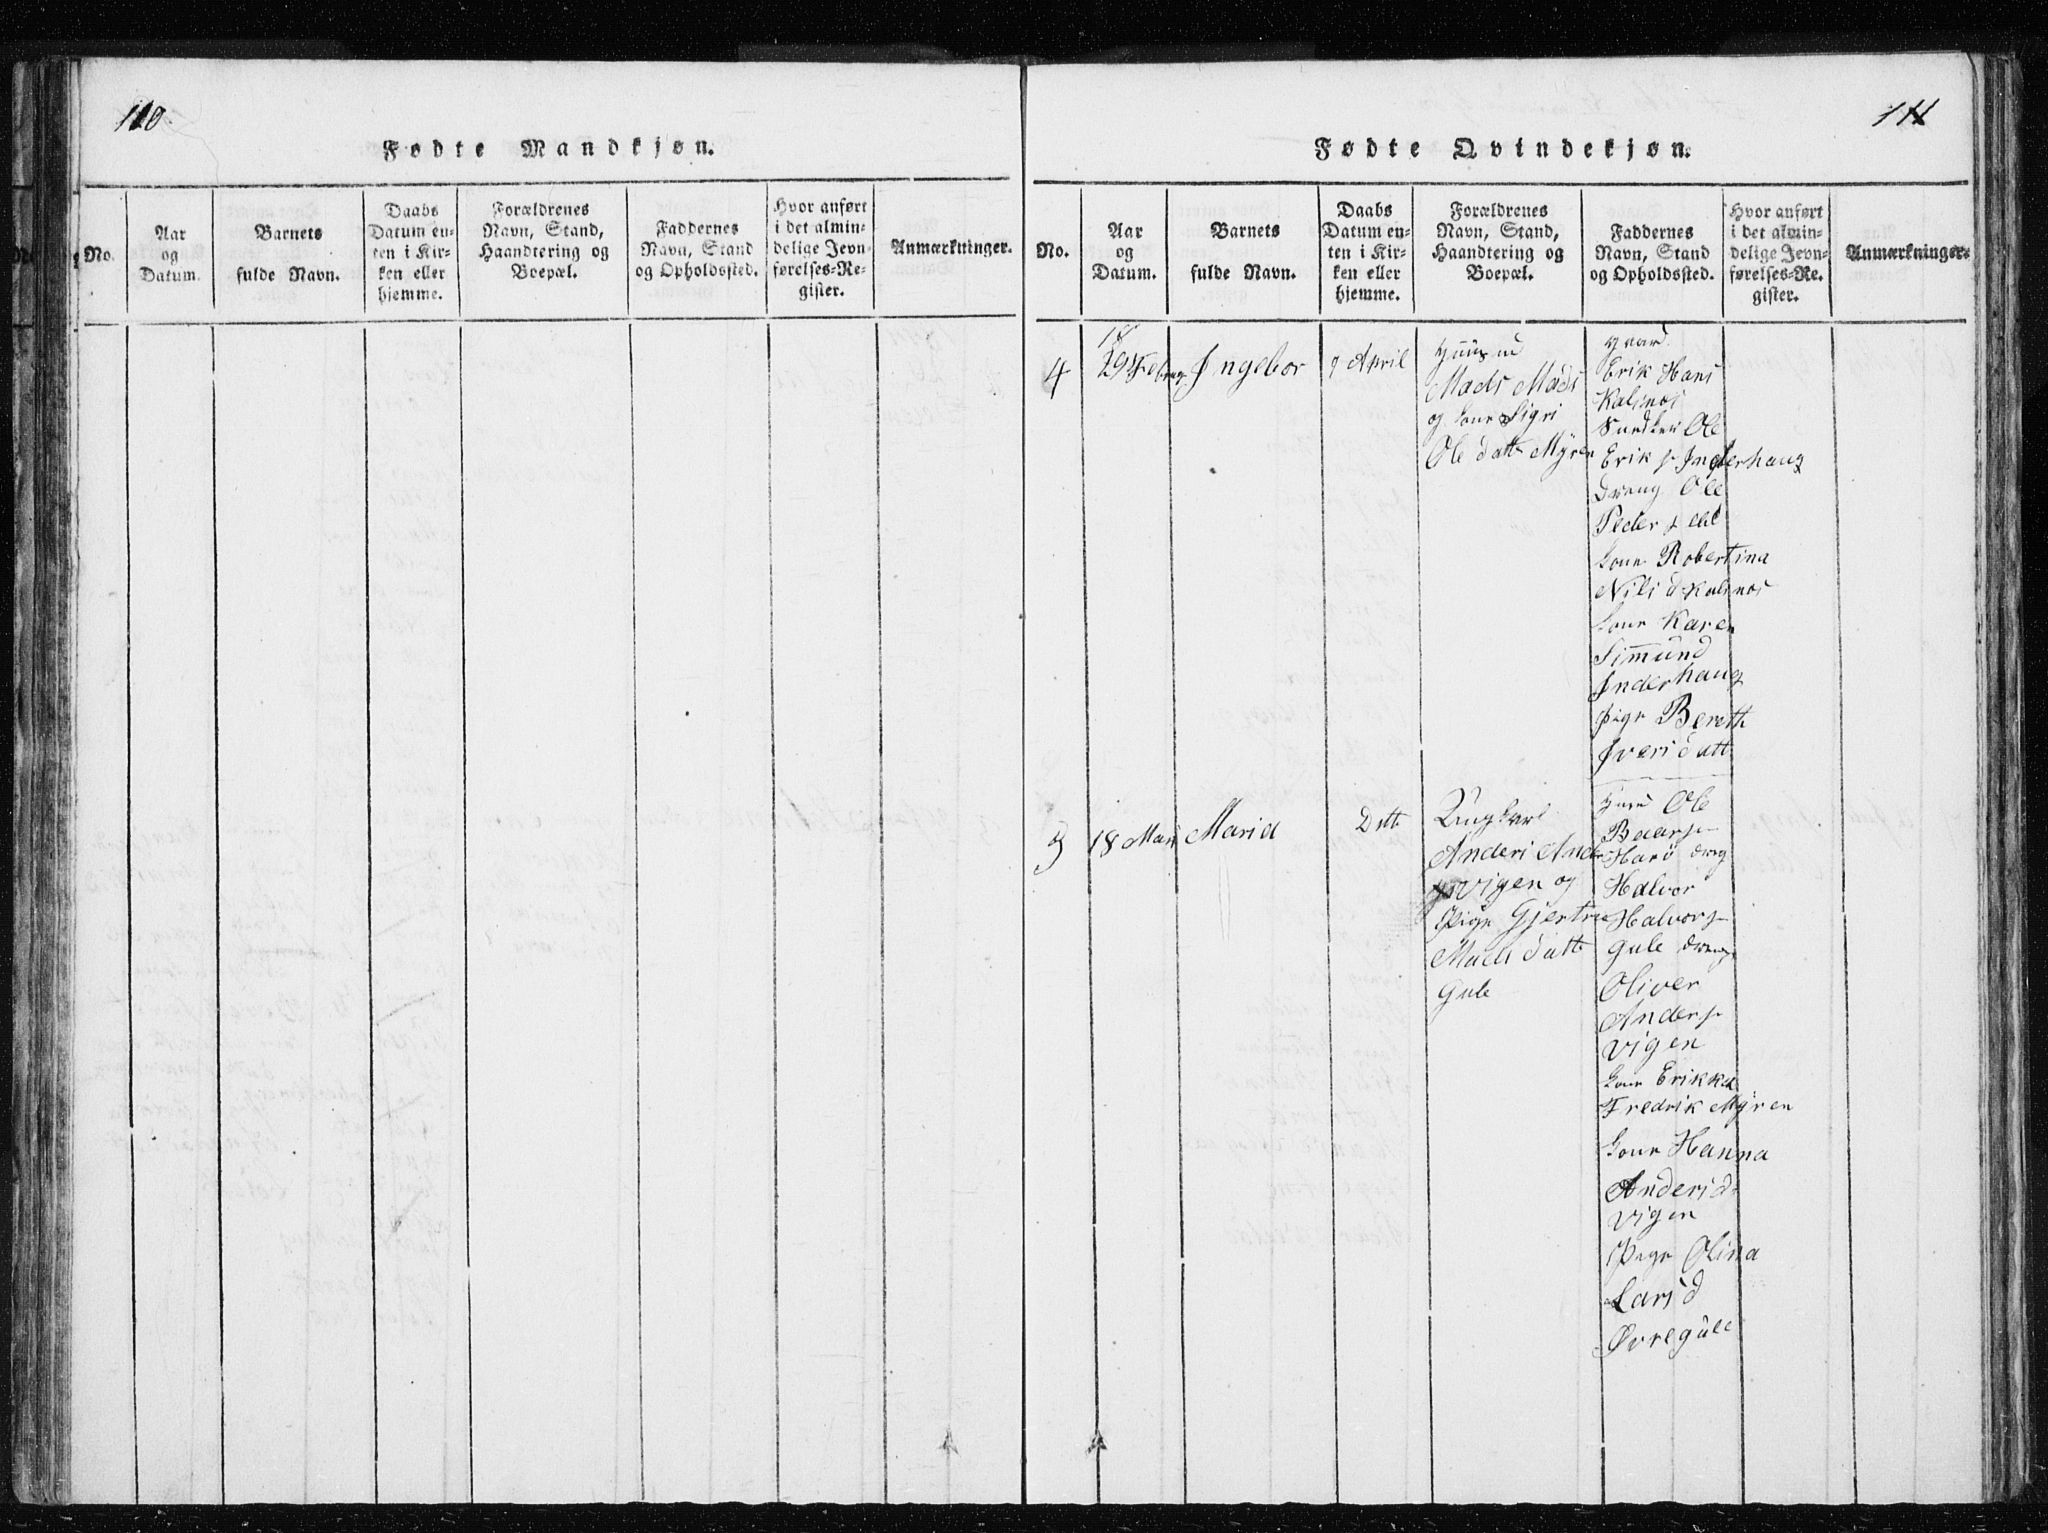 110
Fødte Mandkjøn.
No.
Aar
og
Datum.
Barnets
fulde Navn.
Daabs
Datum en-
ten i Kir-
ken eller
hjemme.
Forældrenes
Navn, Stand,
Haandtering og
Boepæl.
Faddernes
Navn, Stand
og Opholdssted.
Hvor anført
i det almin-
delige Jevn-
førelses-Re-
gister.
Anmærkninger.
111
Fødte Qvindekjøn.
No.
Aar
og
Datum.
Barnets
fulde Navn.
Daabs
Datum en-
ten i Kir-
ken eller
hjemme.
Forældrenes
Navn, Stand,
Haandtering og
Boepæl.
Faddernes
Navn, Stand
og Opholdssted.
Hvor anført
i det almin-
delige Jevn-
førelses-Re-
gister.
Anmærkninger.
4
29 Febrag
Ingebor
9 April
Mads Mads
og Kone Sigri
Ole datt Myren
Erik Hans
Kalsnæs
Snedker Ole
Erik s Inderhaug
Dreng Ole
Peder s
Kone Robertina
Nils d Kalsnæs
Kone Karen
Simmund
Inderhaug
Pige Bereth
Ivers datt
18 Mars
Maria
Dette
Ungkarl
Anders Ander
s Vigen og
Pige Gjertru
Mads datt
Gule
Ole
Baars-
Harø dreng
Halvor
Halvors-
Gule dreng
Oliver
Anders-
Vigen
Kone Erikka
Fredrik Myren
Kone Hanna
Andersd-
Vigen
Pige Olina
Larsd
Øvregule